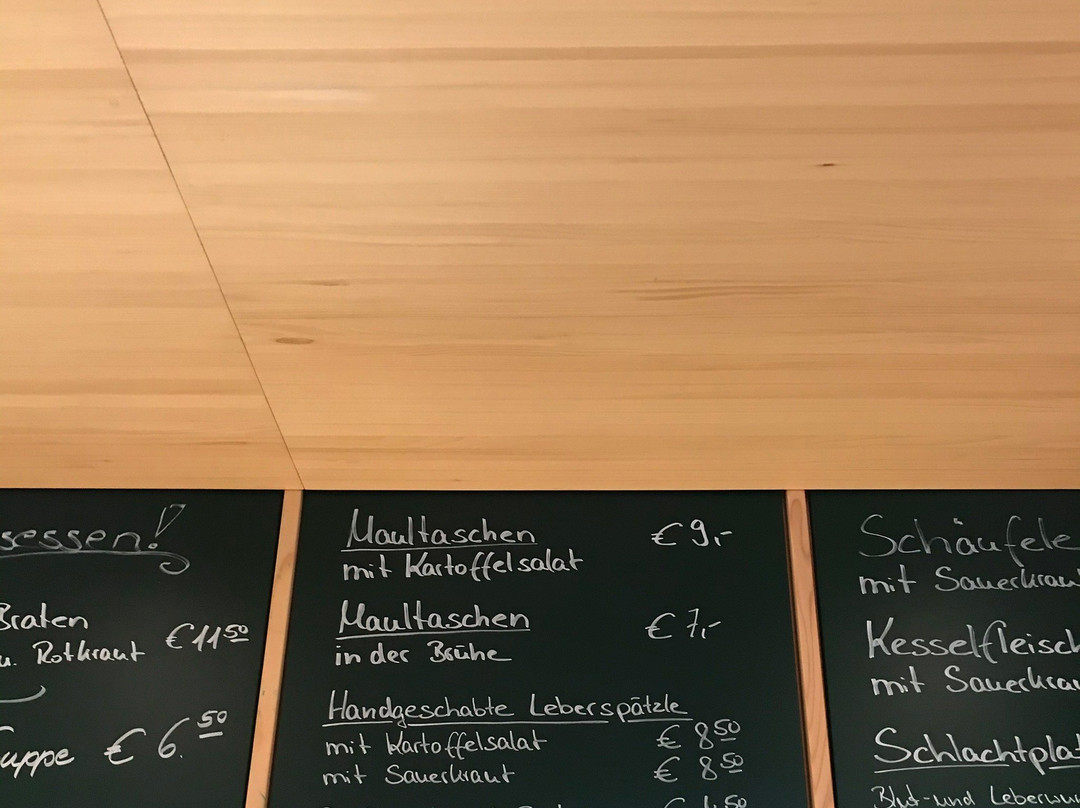 sessen!
Braten
u. Rotkraut € 11 50
Suppe € 6. 50
Maultaschen € 9,-
mit Kartoffelsalat
Maultaschen € 7,-
in der Brühe
Handgeschabte Leberspätzle
mit Kartoffelsalat € 8 50
mit Sauerkraut € 8 50
Schäufele
mit Sauerkraut
Kesselfleisch
mit Sauerkrau
Schlachtplat
Blut-und Leberwu